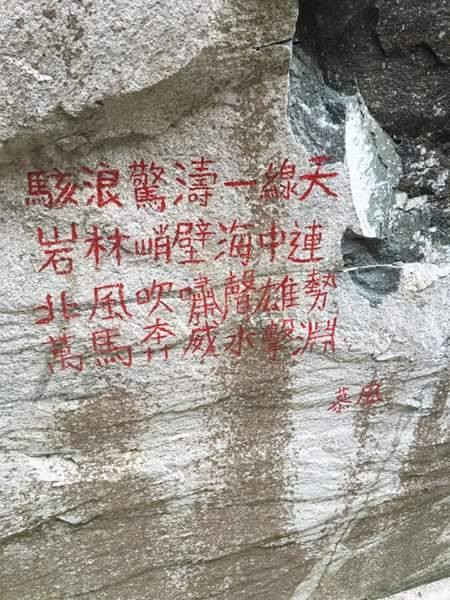 駭浪驚濤一線天
岩林峭壁海中連
北風吹嘯聲雄勢
萬馬奔威水擊淵
慕風